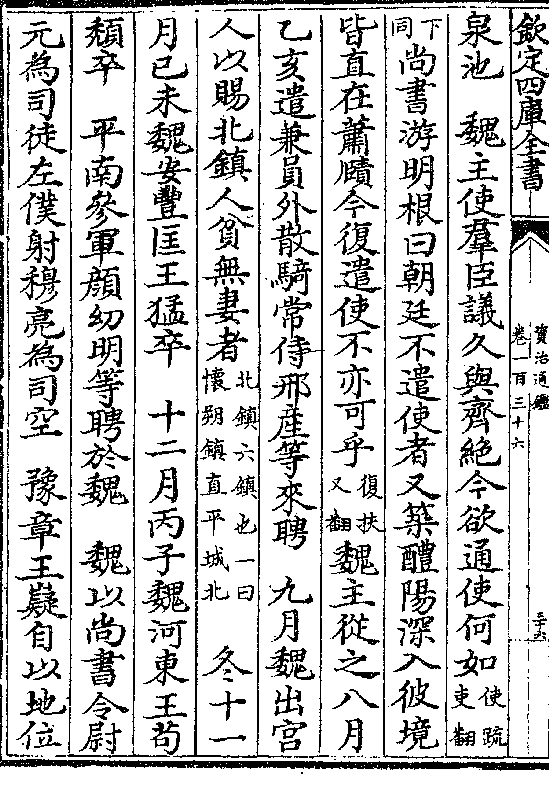 欽定四庫全書
資治通鑑
卷一百三十六
泉池　魏主使羣臣議久與齊絶今欲通使何如使疏吏翻
下同尚書游明根曰朝廷不遣使者又築醴陽深入彼境
皆直在蕭賾今復遣使不亦可乎復扶又翻魏主從之八月
乙亥遣兼員外散騎常侍邢産等來聘　九月魏出宫
人以賜北鎮人貧無妻者北鎮六鎮也一曰懷朔鎮直平城北　冬十一
月己未魏安豐匡王猛卒　十二月丙子魏河東王苟
頽卒　平南參軍顔幼明等聘於魏　魏以尚書令尉
元為司徒左僕射穆亮為司空　豫章王嶷自以地位